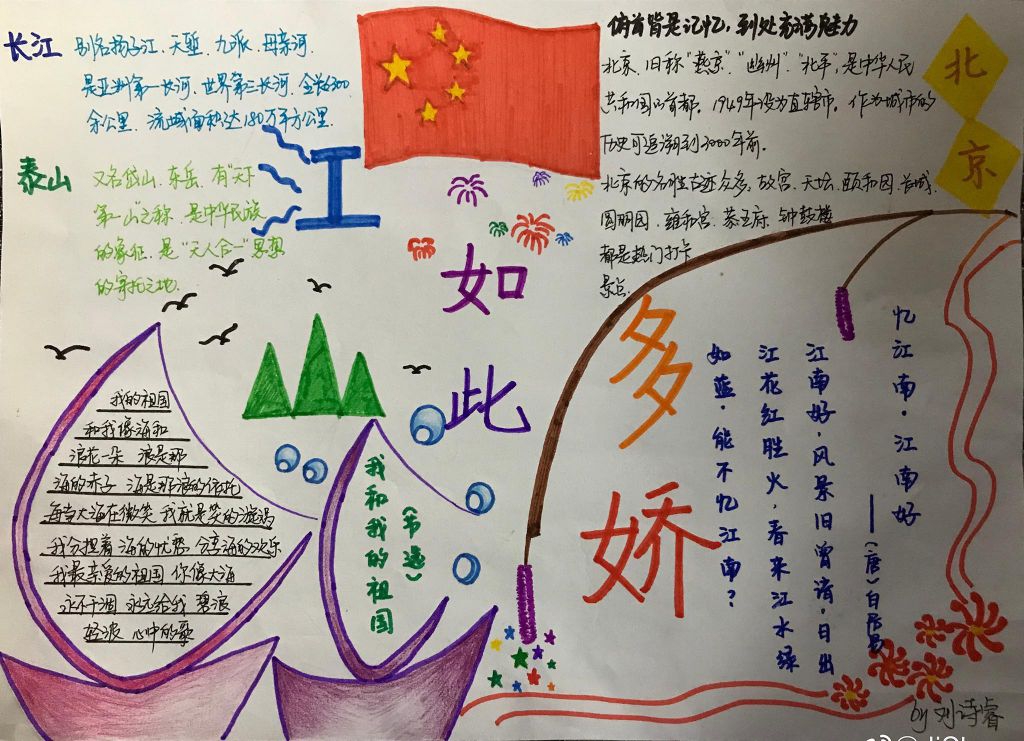 长江
别名扬子江、天堑、九派、母亲河,
是亚洲第一长河,世界第三长河,全长6300
余公里,流域面积达180万平方公里.
泰山
又名岱山、东岳,有"天下
第一山"之称,是中华民族
的象征,是"天人合一"思想
的寄托之地.
江
如
此
多
娇
俯首皆是记忆,到处充满魅力
北京,旧称"燕京""幽州""北平",是中华人民
共和国的首都,1949年设为直辖市,作为城市的
历史可追溯到3000年前.
北京的名胜古迹众多,故宫、天坛、颐和园、长城、
圆明园、雍和宫、恭王府、钟鼓楼
都是热门打卡
景点.
北
京
忆江南·江南好
——(唐)白居易
江南好,风景旧曾谙,日出
江花红胜火,春来江水绿
如蓝,能不忆江南?
我的祖国
和我像海和
浪花一朵 浪是那
海的赤子 海是那浪的依托
每当大海在微笑 我就是笑的漩涡
我分担着海的忧愁 分享海的欢乐
我最亲爱的祖国 你像大海
永不干涸 永远给我 碧浪
轻波 心中的歌
我和我的祖国
(节选)
by 刘诗睿